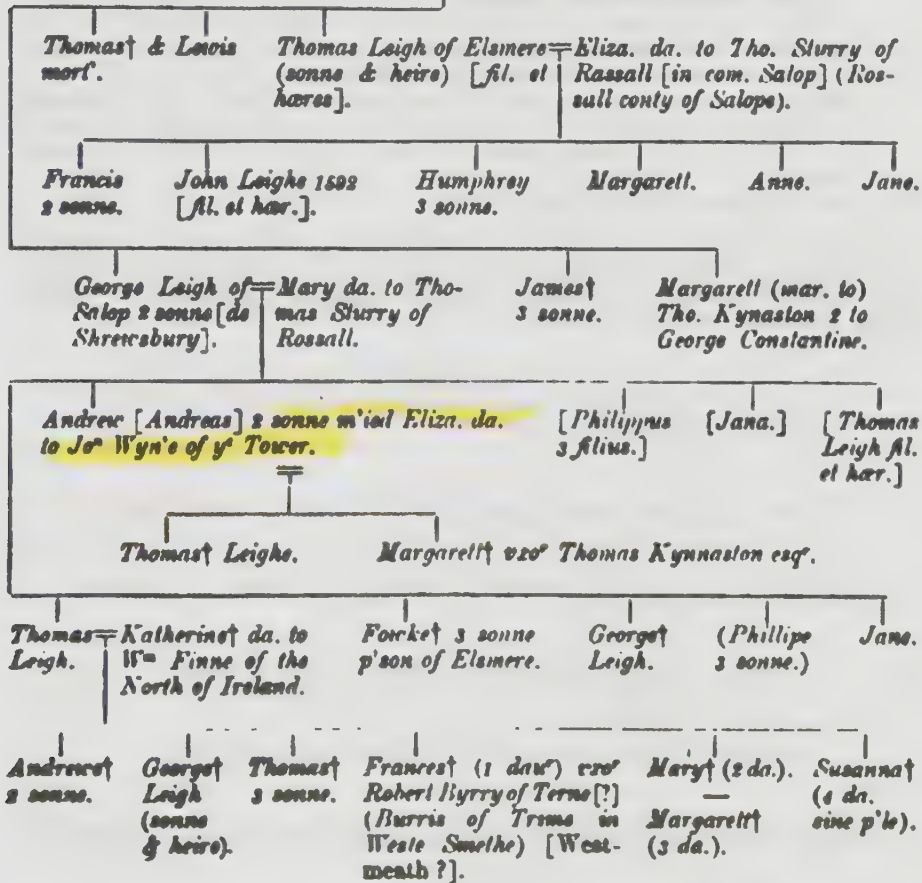 Thomas† & Lewis
mortᵉ.
Thomas Leigh of Elsmere
(sonne & heire) [fil. et
hæres].
Eliza. da. to Tho. Sturry of
Rassall [in com. Salop] (Ros-
sull conty of Salope).
Francis
2 sonne.
John Leighe 1592
[fil. et hær.].
Humphrey
3 sonne.
Margarett.
Anne.
Jane.
George Leigh of
Salop 2 sonne [de
Shrewsbury].
Mary da. to Tho-
mas Sturry of
Rossall.
James†
3 sonne.
Margarett (mar. to)
Tho. Kynaston 2 to
George Constantine.
Andrew [Andreas] 2 sonne m'ied Eliza. da.
to Joⁿ Wyn'e of yᵉ Tower.
[Philippus
3 filius.]
[Jana.]
[Thomas
Leigh fil.
et hær.]
Thomas† Leighe.
Margarett† vxoʳ Thomas Kynnaston esqʳ.
Thomas
Leigh.
Katherine† da. to
Wᵐ Finne of the
North of Ireland.
Fowcke† 3 sonne
p'son of Elsmere.
George†
Leigh.
(Phillipe
3 sonne.)
Jane.
Andrewe†
2 sonne.
George†
Leigh
(sonne
& heire).
Thomas†
3 sonne.
Frances† (1 dauʳ) vxoʳ
Robert Byrry of Terne [?]
(Burris of Trime in
Weste Smethe) [West-
meath ?].
Mary† (2 da.).
Margarett†
(3 da.).
Susanna†
(4 da.
sine p'le).